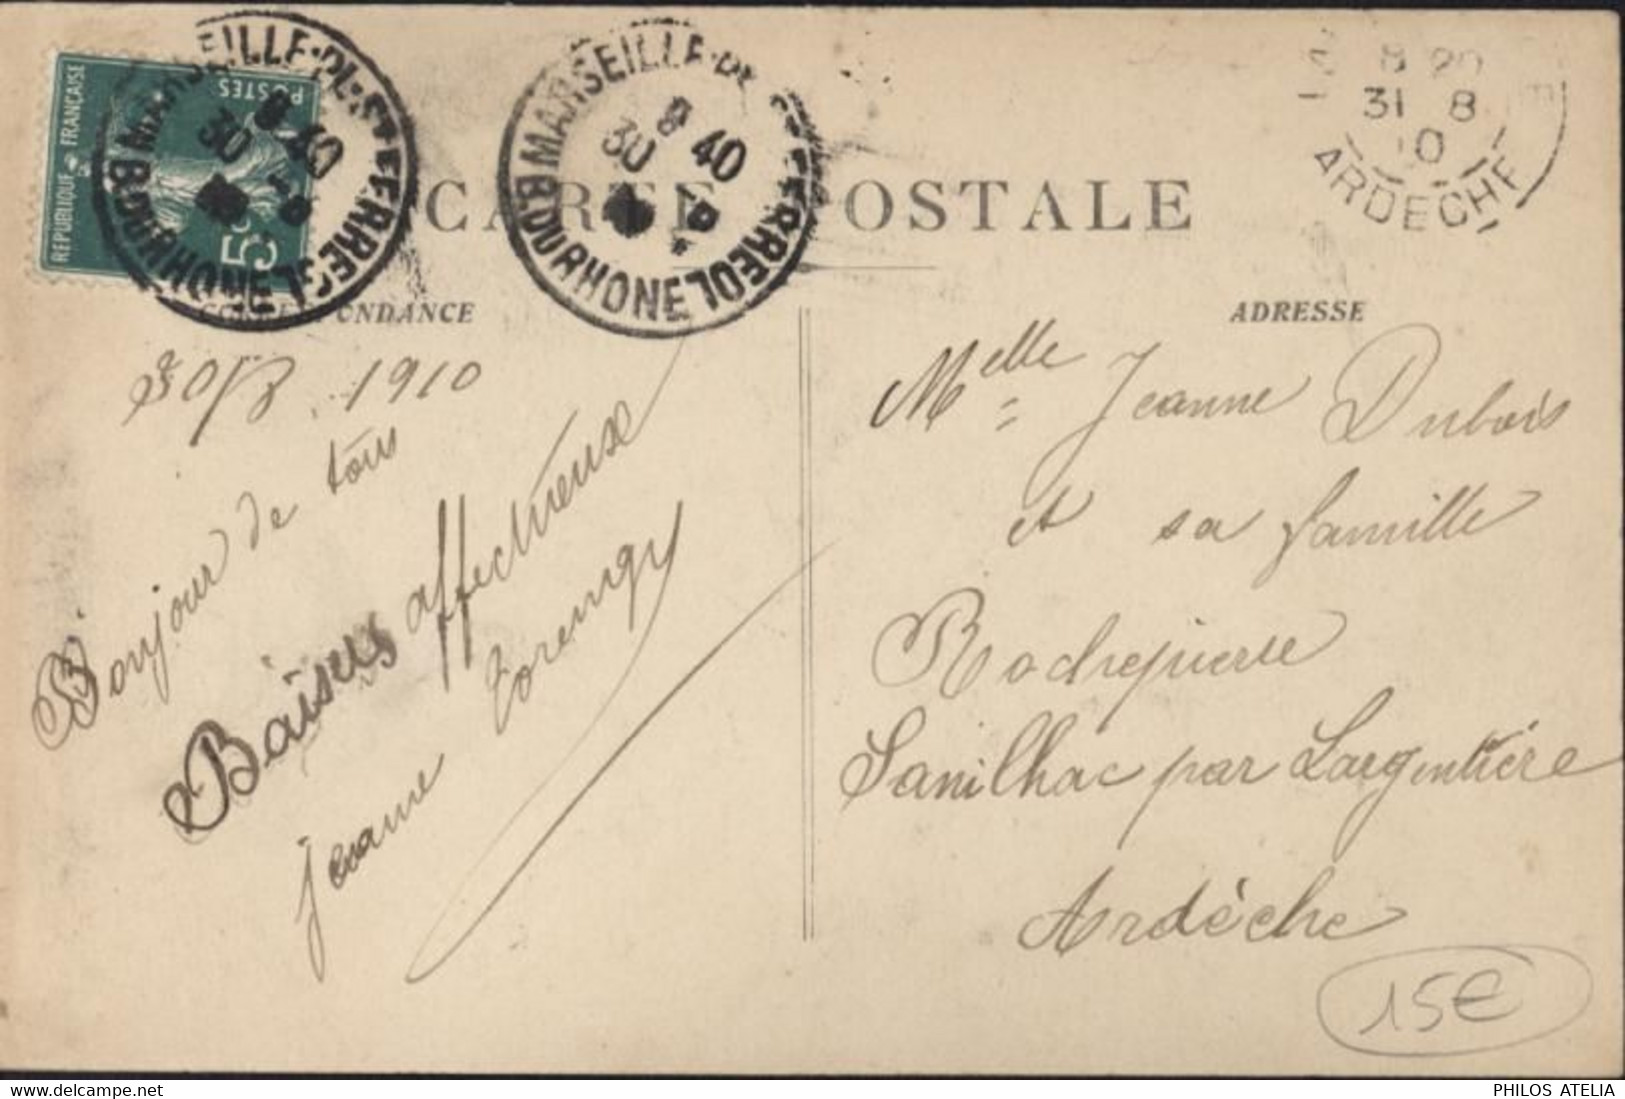 REPUBLIQUE FRANÇAISE
POSTES
5c
MARSEILLE·PL·ST FERREOL
8 40
30 8
B. DU RHONE
MARSEILLE·PL ST FERREOL
8 40
30 8
B. DU RHONE
8 20
31 8
10
ARDECHE
CARTE POSTALE
CORRESPONDANCE
ADRESSE
30/8 1910
Bonjour de tous
Baisers affectueux
jeanne
Melle Jeanne Dubois
et sa famille
Rochepierre
Sanilhac par Largentière
Ardèche
15€
PHILOS ATELIA